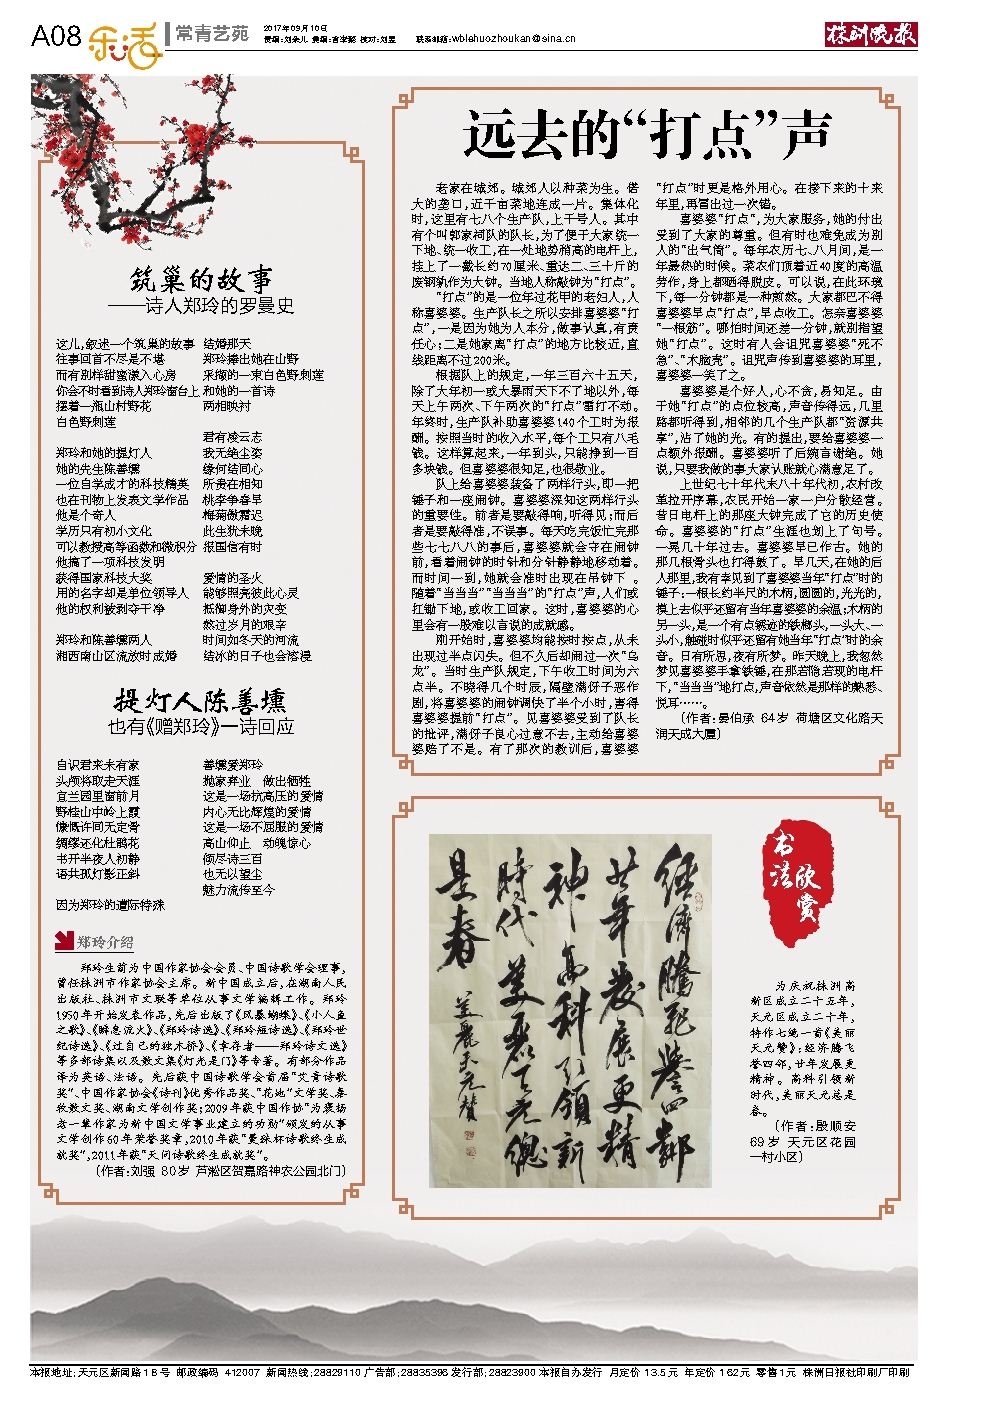 A08 乐活 常青艺苑
2017年09月10日
联系邮箱:wblehuozhoukan@sina.cn
株洲晚报
筑巢的故事
——诗人郑玲的罗曼史
这儿,叙述一个筑巢的故事
往事回首不尽是不堪
而有别样甜蜜漾入心房
你会不时看到诗人郑玲窗台上
摆着一瓶山村野花
白色野刺莲
郑玲和她的提灯人
她的先生陈善壎
一位自学成才的科技精英
也在刊物上发表文学作品
他是个奇人
学历只有初小文化
可以教授高等函数和微积分
他搞了一项科技发明
获得国家科技大奖
用的名字却是单位领导人
他的权利被剥夺干净
郑玲和陈善壎两人
湘西南山区流放时成婚
结婚那天
郑玲捧出她在山野
采撷的一束白色野刺莲
和她的一首诗
两相映衬
君有凌云志
我无绝尘姿
缘何结同心
所贵在相知
桃李争春早
梅菊傲霜迟
此生犹未晚
报国信有时
爱情的圣火
能够照亮彼此心灵
抵御身外的灾变
熬过岁月的艰辛
时间如冬天的河流
结冰的日子也会溶漫
提灯人陈善壎
也有《赠郑玲》一诗回应
自识君来未有家
头颅将取走天涯
宜兰园里窗前月
野桂山中岭上霞
慷慨许同无定骨
绸缪还化杜鹃花
书开半夜人初静
语共孤灯影正斜
因为郑玲的遭际特殊
善壎爱郑玲
抛家弃业 做出牺牲
这是一场抗高压的爱情
内心无比辉煌的爱情
这是一场不屈服的爱情
高山仰止 动魄惊心
倾尽诗三百
也无以望尘
魅力流传至今
郑玲介绍
郑玲生前为中国作家协会会员、中国诗歌学会理事,
曾任株洲市作家协会主席。新中国成立后,在湖南人民
出版社、株洲市文联等单位从事文学编辑工作。郑玲
1950年开始发表作品,先后出版了《风暴蝴蝶》、《小人鱼
之歌》、《瞬息流火》、《郑玲诗选》、《郑玲短诗选》、《郑玲世
纪诗选》、《过自己的独木桥》、《幸存者——郑玲诗文选》
等多部诗集以及散文集《灯光是门》等专著。有部分作品
译为英语、法语。先后获中国诗歌学会首届“艾青诗歌
奖”、中国作家协会《诗刊》优秀作品奖、“花地”文学奖、秦
牧散文奖、湖南文学创作奖;2009年获中国作协“为褒扬
老一辈作家为新中国文学事业建立的功勋”颁发的从事
文学创作60年荣誉奖章,2010年获“曼殊杯诗歌终生成
就奖”,2011年获“天问诗歌终生成就奖”。
(作者:刘强 80岁 芦淞区贺嘉路神农公园北门)
远去的“打点”声
老家在城郊。城郊人以种菜为生。偌
大的垄口,近千亩菜地连成一片。集体化
时,这里有七八个生产队,上千号人。其中
有个叫郭家祠队的队长,为了便于大家统一
下地、统一收工,在一处地势稍高的电杆上,
挂上了一截长约70厘米、重达二、三十斤的
废钢轨作为大钟。当地人称敲钟为“打点”。
“打点”的是一位年过花甲的老妇人,人
称喜婆婆。生产队长之所以安排喜婆婆“打
点”,一是因为她为人本分,做事认真,有责
任心;二是她家离“打点”的地方比较近,直
线距离不过200米。
根据队上的规定,一年三百六十五天,
除了大年初一或大暴雨天下不了地以外,每
天上午两次、下午两次的“打点”雷打不动。
年终时,生产队补助喜婆婆140个工时为报
酬。按照当时的收入水平,每个工只有八毛
钱。这样算起来,一年到头,只能挣到一百
多块钱。但喜婆婆很知足,也很敬业。
队上给喜婆婆装备了两样行头,即一把
锤子和一座闹钟。喜婆婆深知这两样行头
的重要性。前者是要敲得响,听得见;而后
者是要敲得准,不误事。每天吃完饭忙完那
些七七八八的事后,喜婆婆就会守在闹钟
前,看着闹钟的时针和分针静静地移动着。
而时间一到,她就会准时出现在吊钟下 。
随着“当当当”“当当当”的“打点”声,人们或
扛锄下地,或收工回家。这时,喜婆婆的心
里会有一股难以言说的成就感。
刚开始时,喜婆婆均能按时按点,从未
出现过半点闪失。但不久后却闹过一次“乌
龙”。当时生产队规定,下午收工时间为六
点半。不晓得几个时辰,隔壁满伢子恶作
剧,将喜婆婆的闹钟调快了半个小时,害得
喜婆婆提前“打点”。见喜婆婆受到了队长
的批评,满伢子良心过意不去,主动给喜婆
婆赔了不是。有了那次的教训后,喜婆婆
“打点”时更是格外用心。在接下来的十来
年里,再冒出过一次错。
喜婆婆“打点”,为大家服务,她的付出
受到了大家的尊重。但有时也难免成为别
人的“出气筒”。每年农历七、八月间,是一
年最热的时候。菜农们顶着近40度的高温
劳作,身上都晒得脱皮。可以说,在此环境
下,每一分钟都是一种煎熬。大家都巴不得
喜婆婆早点“打点”,早点收工。怎奈喜婆婆
“一根筋”。哪怕时间还差一分钟,就别指望
她“打点”。这时有人会诅咒喜婆婆“死不
急”、“木脑壳”。诅咒声传到喜婆婆的耳里,
喜婆婆一笑了之。
喜婆婆是个好人,心不贪,易知足。由
于她“打点”的点位较高,声音传得远,几里
路都听得到,相邻的几个生产队都“资源共
享”,沾了她的光。有的提出,要给喜婆婆一
点额外报酬。喜婆婆听了后婉言谢绝。她
说,只要我做的事大家认账就心满意足了。
上世纪七十年代末八十年代初,农村改
革拉开序幕,农民开始一家一户分散经营。
昔日电杆上的那座大钟完成了它的历史使
命。喜婆婆的“打点”生涯也划上了句号。
一晃几十年过去。喜婆婆早已作古。她的
那几根骨头也打得鼓了。早几天,在她的后
人那里,我有幸见到了喜婆婆当年“打点”时的
锤子:一根长约半尺的木柄,圆圆的,光光的,
摸上去似乎还留有当年喜婆婆的余温;木柄的
另一头,是一个有点锈迹的铁榔头,一头大、一
头小,触碰时似乎还留有她当年“打点”时的余
音。日有所思,夜有所梦。昨天晚上,我忽然
梦见喜婆婆手拿铁锤,在那若隐若现的电杆
下,“当当当”地打点,声音依然是那样的熟悉、
悦耳……。
(作者:晏伯承 64岁 荷塘区文化路天
润天成大厦)
经济腾飞誉四邻
廿年发展更精
神高科引领新
时代美丽天元总
是春
美丽天元赞
书法欣赏
为庆祝株洲高
新区成立二十五年,
天元区成立二十年,
特作七绝一首《美丽
天元赞》:经济腾飞
誉四邻,廿年发展更
精神。高科引领新
时代,美丽天元总是
春。
(作者:殷顺安
69岁 天元区花园
一村小区)
本报地址:天元区新闻路18号 邮政编码 412007 新闻热线:28829110 广告部:28835396 发行部:28823900 本报自办发行 月定价 13.5元 年定价 162元 零售1元 株洲日报社印刷厂印刷